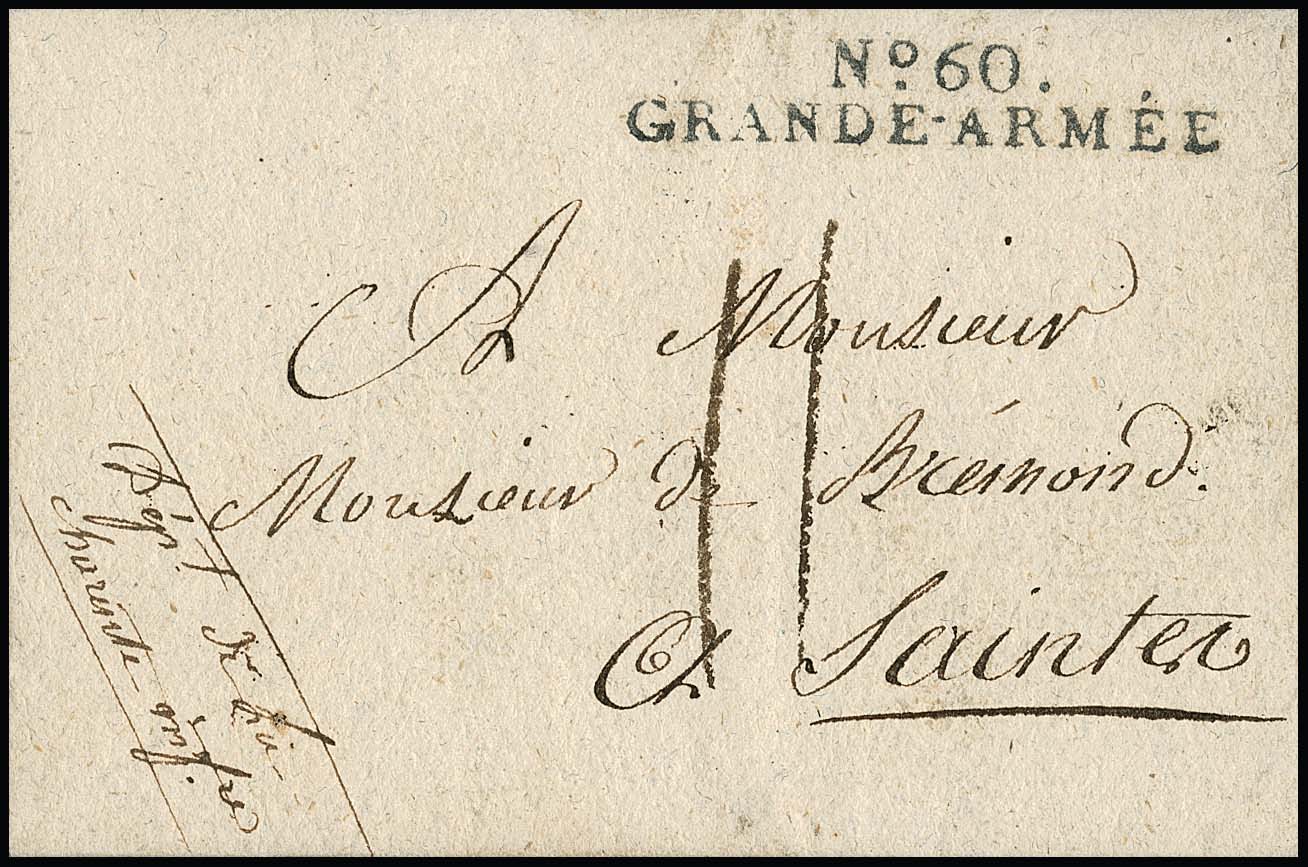 Nº. 60.
GRANDE-ARMÉE
A Monsieur
Monsieur de Brémond.
A Saintes
11
Dép.t de la
Charente infre